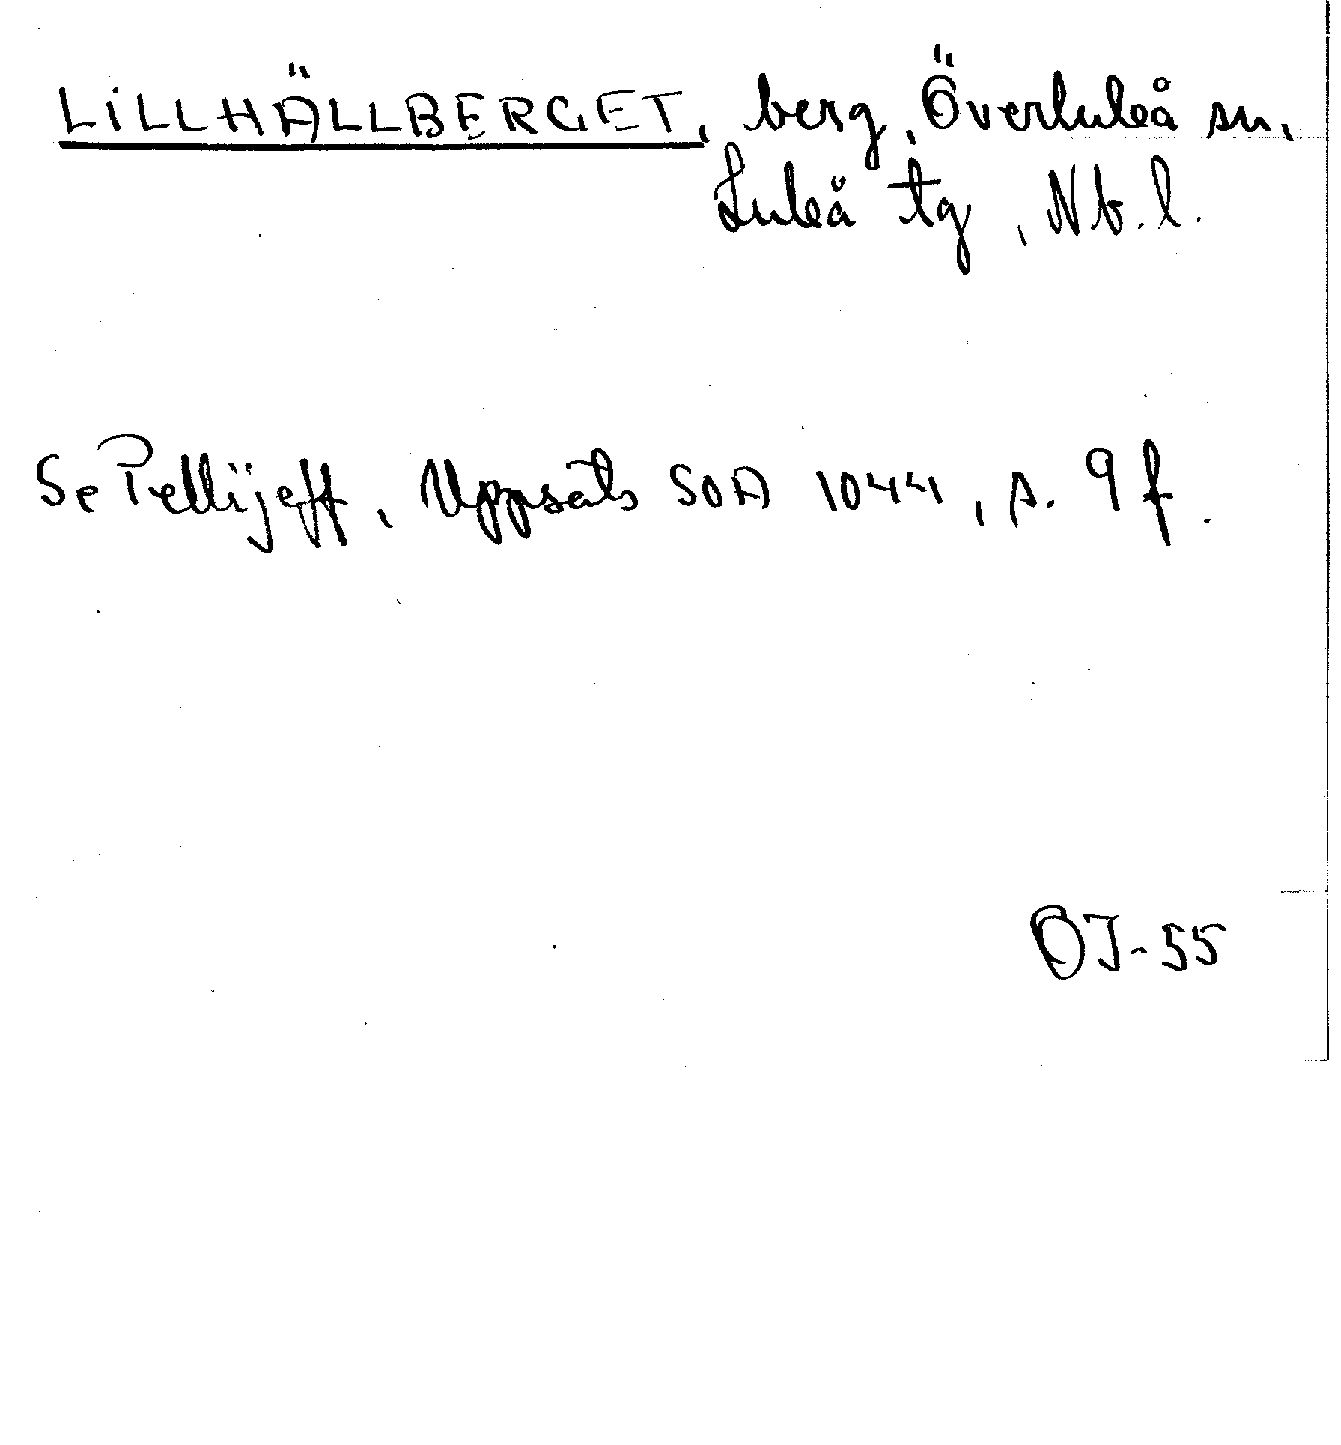 LILLHÄLLBERGET, berg, Överluleå sn,
Luleå tg, Nb. l.
Se Pellijeff, Uppsats SOA 1044, s. 9 f.
OJ-55